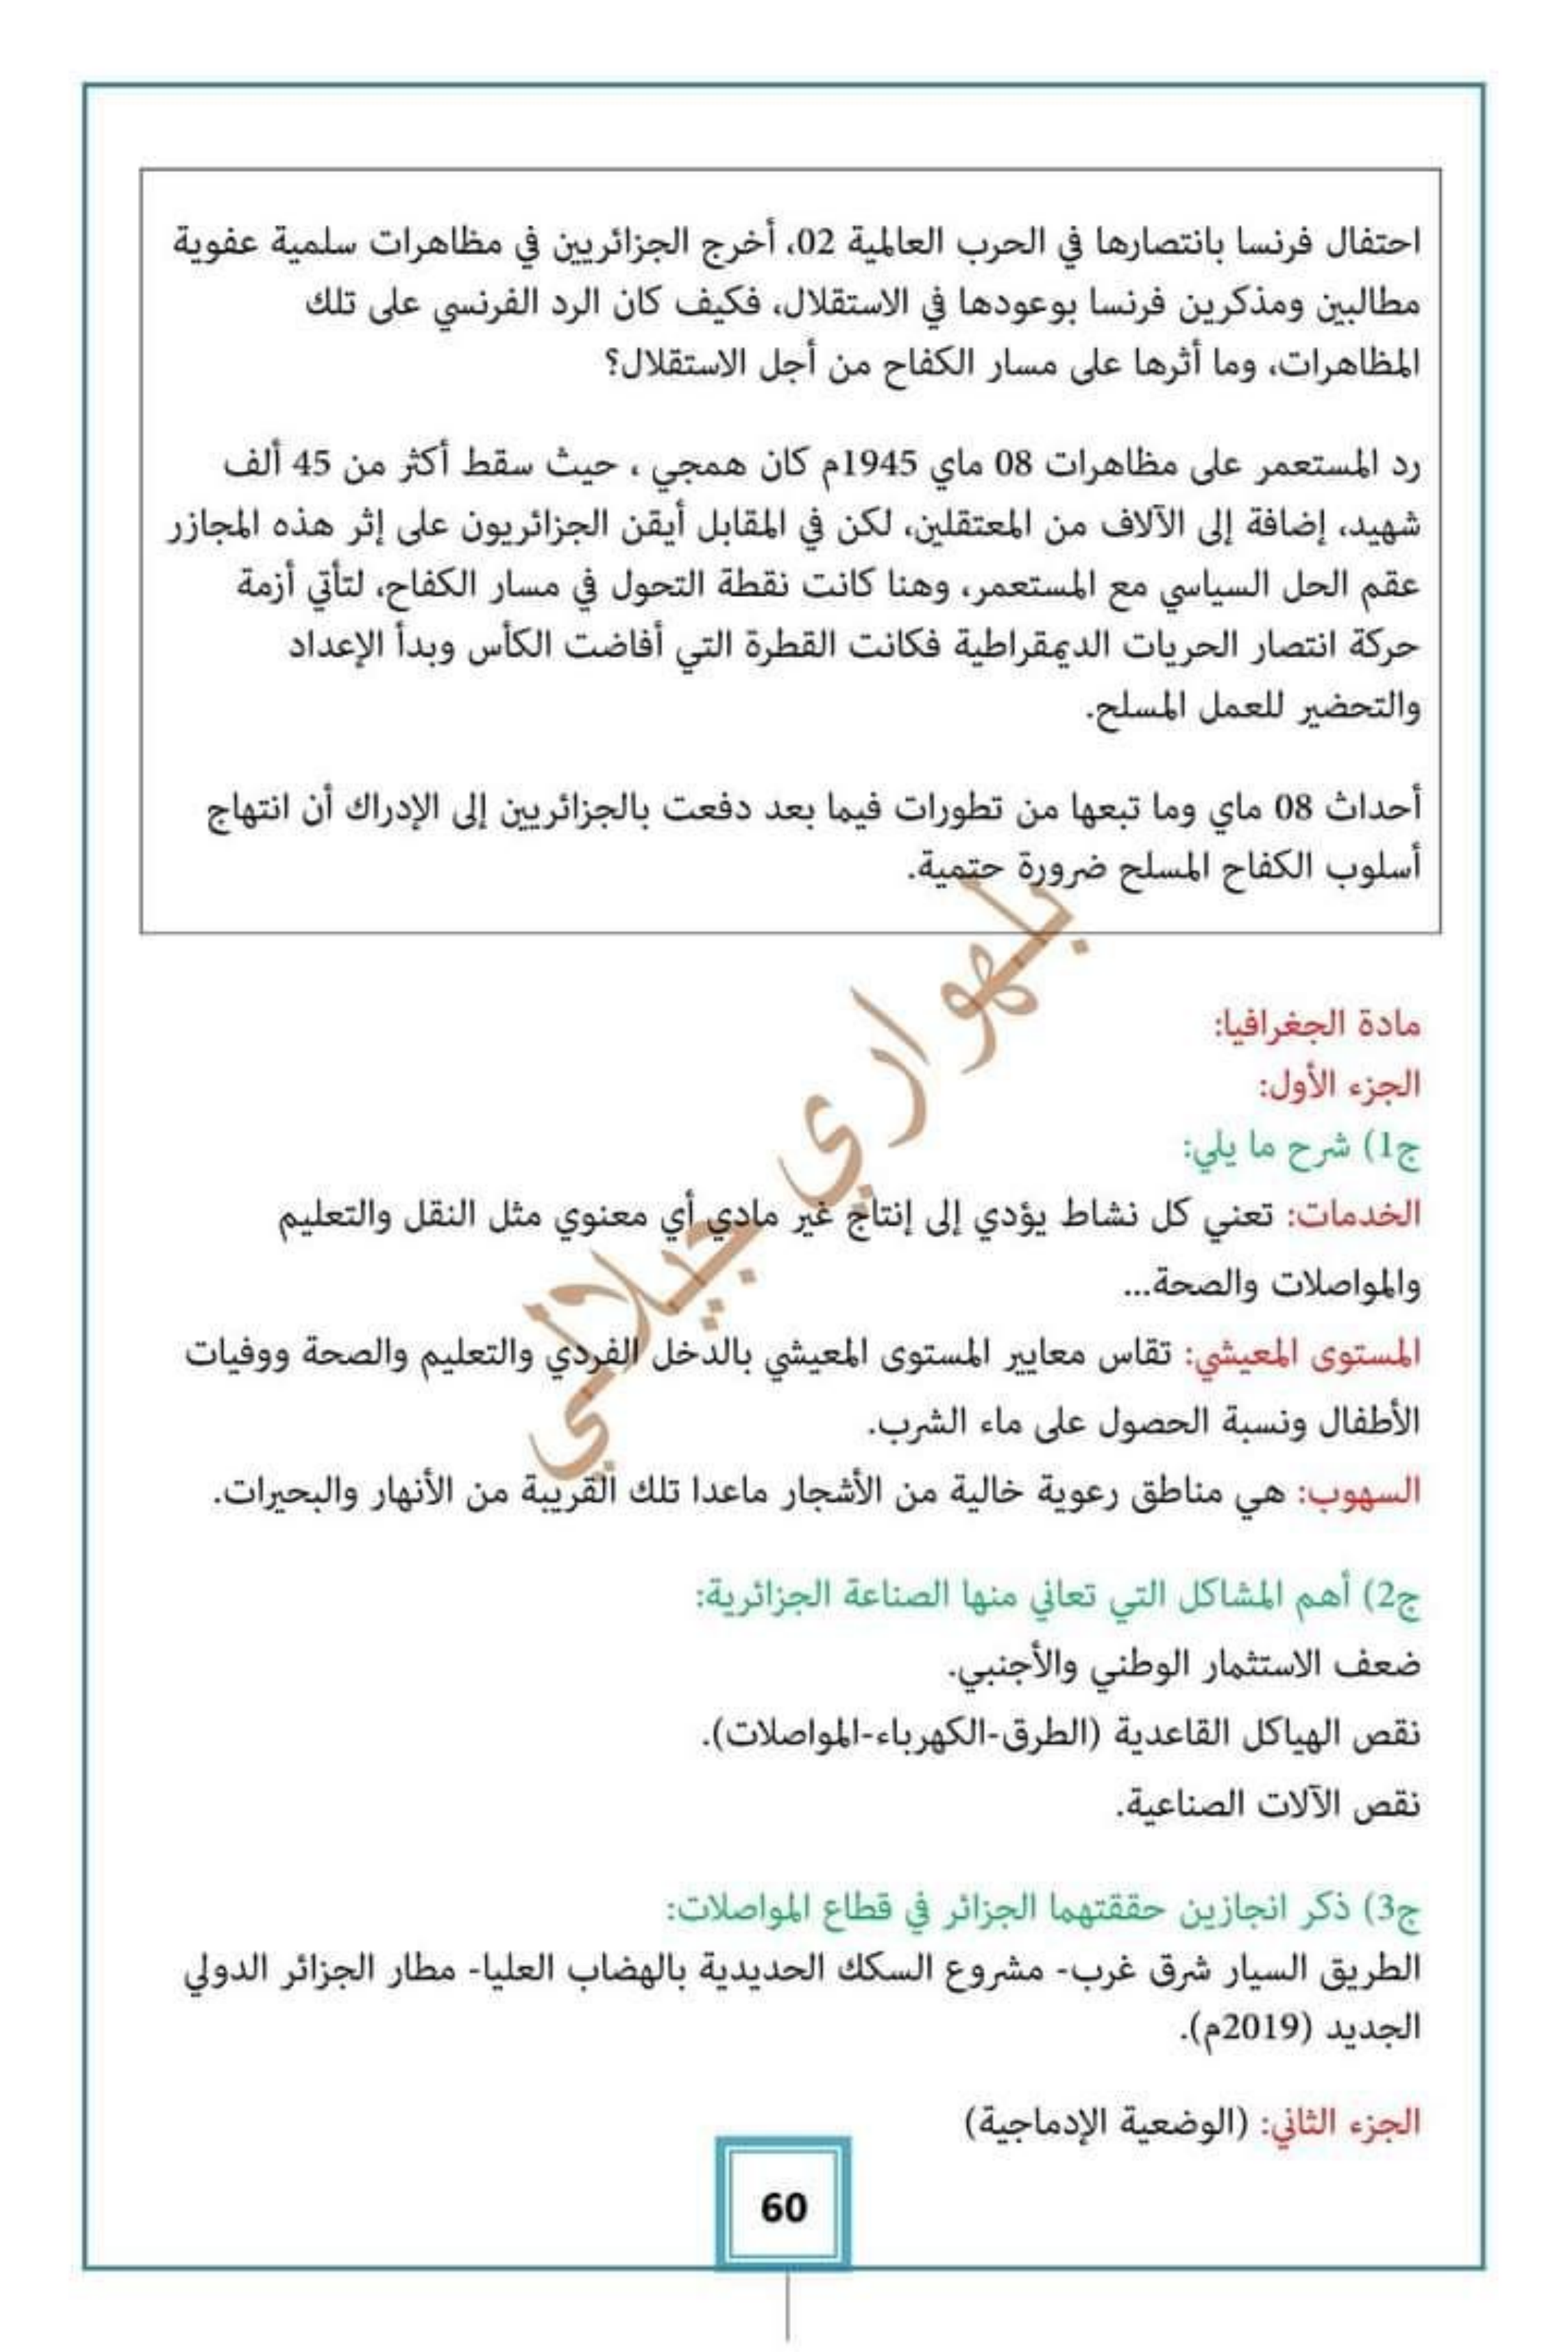 احتفال فرنسا بانتصارها في الحرب العالمية 02، أخرج الجزائريين في مظاهرات سلمية عفوية
مطالبين ومذكرين فرنسا بوعودها في الاستقلال، فكيف كان الرد الفرنسي على تلك
المظاهرات، وما أثرها على مسار الكفاح من أجل الاستقلال؟
رد المستعمر على مظاهرات 08 ماي 1945م كان همجي ، حيث سقط أكثر من 45 ألف
شهيد، إضافة إلى الآلاف من المعتقلين، لكن في المقابل أيقن الجزائريون على إثر هذه المجازر
عقم الحل السياسي مع المستعمر، وهنا كانت نقطة التحول في مسار الكفاح، لتأتي أزمة
حركة انتصار الحريات الديمقراطية فكانت القطرة التي أفاضت الكأس وبدأ الإعداد
والتحضير للعمل المسلح.
أحداث 08 ماي وما تبعها من تطورات فيما بعد دفعت بالجزائريين إلى الإدراك أن انتهاج
أسلوب الكفاح المسلح ضرورة حتمية.
بلهواري جيلالي
مادة الجغرافيا:
الجزء الأول:
ج1) شرح ما يلي:
الخدمات: تعني كل نشاط يؤدي إلى إنتاج غير مادي أي معنوي مثل النقل والتعليم
والمواصلات والصحة...
المستوى المعيشي: تقاس معايير المستوى المعيشي بالدخل الفردي والتعليم والصحة ووفيات
الأطفال ونسبة الحصول على ماء الشرب.
السهوب: هي مناطق رعوية خالية من الأشجار ماعدا تلك القريبة من الأنهار والبحيرات.
ج2) أهم المشاكل التي تعاني منها الصناعة الجزائرية:
ضعف الاستثمار الوطني والأجنبي.
نقص الهياكل القاعدية (الطرق-الكهرباء-المواصلات).
نقص الآلات الصناعية.
ج3) ذكر انجازين حققتهما الجزائر في قطاع المواصلات:
الطريق السيار شرق غرب- مشروع السكك الحديدية بالهضاب العليا- مطار الجزائر الدولي
الجديد (2019م).
الجزء الثاني: (الوضعية الإدماجية)
60